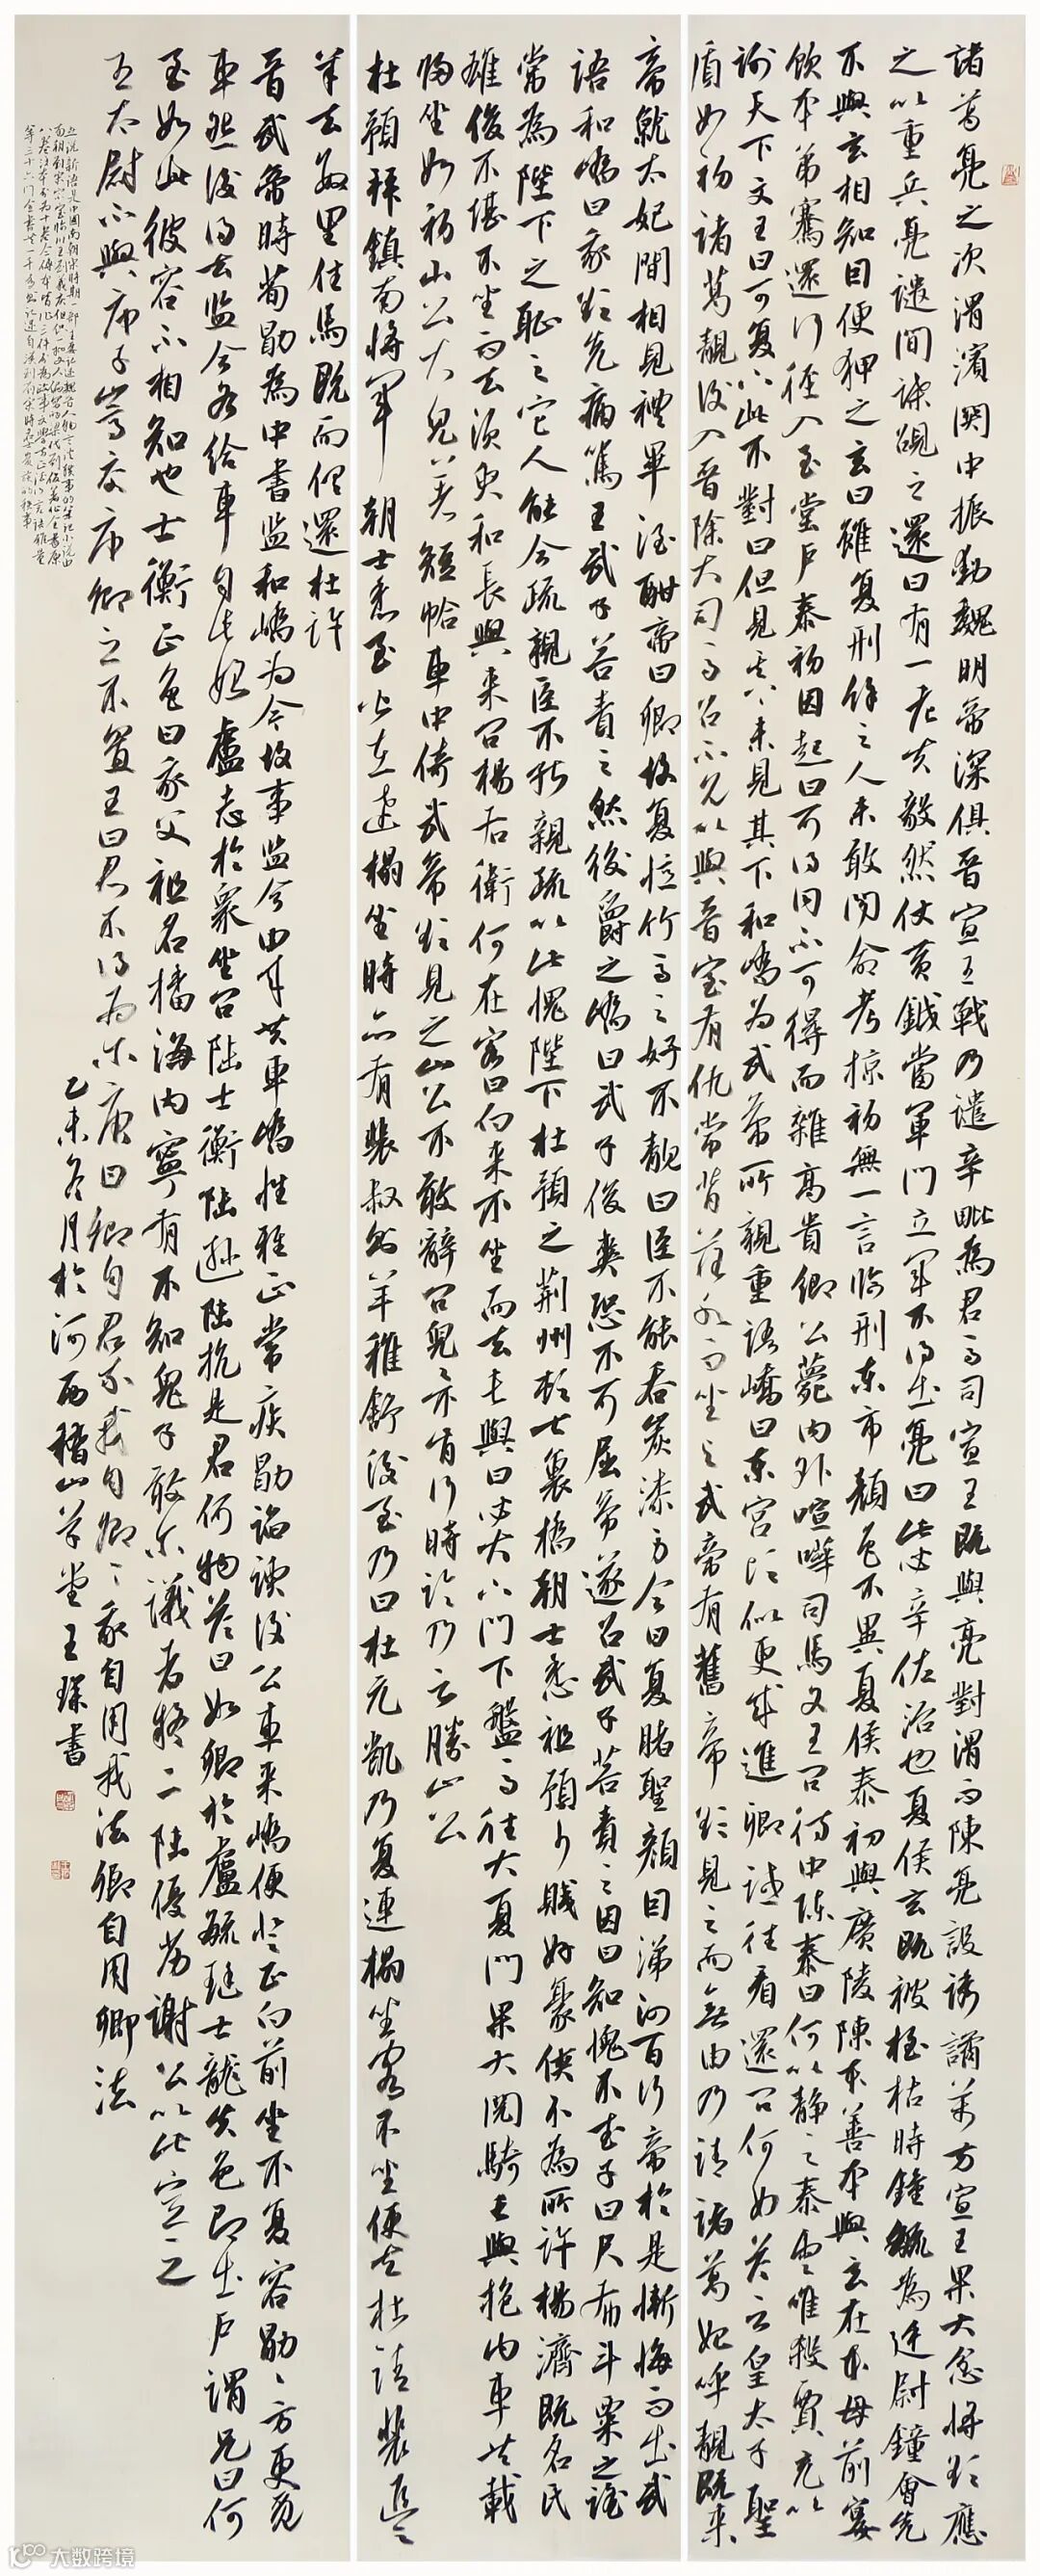 諸葛亮之次渭濱關中振動魏明帝深俱晉宣王戰乃遣辛毗為君司宣王既與亮對渭而陳亮設誘譎萬方宣王果大忿將欲應
之以重兵亮遣間諜覘之還曰有一老夫毅然仗黃鉞當軍門立軍不得出亮曰此必辛佐治也夏侯玄既被桎枯時鐘毓為廷尉鐘會先
不與玄相知因便狎之玄曰雖复刑餘之人未敢聞命考掠初無一言臨刑東市顏色不異夏侯泰初與廣陵陳本善本與玄在本母前宴
飲本弟騫還行徑入至堂戶泰初因起曰可得同不可得而雜高貴卿公薨內外喧嘩司馬文王召侍中陳泰曰何以静之泰云唯殺賈充以
謝天下文王曰可复下此不對曰但見其上未見其下和嶠為武帝所親重語嶠曰東宮頃似更成進卿試往看還召何如答云皇太子聖
質如初諸葛靚後入晉除大司馬召不允以與晉室有仇常背洛水而坐之武帝有舊帝欲見之而無由乃請諸葛妃呼靚既來
帝就太妃間相見禮畢酒酣帝曰卿故复憶竹馬之好不靚曰臣不能吞炭漆身今日复睹聖顏因涕泗百行帝於是慚悔而出武
語和嶠曰我欲先痛罵王武子若責之然後爵之嶠曰武子俊爽恐不可屈帝遂召武子苦責之因曰知愧不武子曰尺布斗粟之謠
常為陛下之恥之它人能令疏親臣不能親疏以此愧陛下杜預之荊州頓七裏橋朝士悉祖預少賤好豪俠不為所許楊濟既名氏
雄俊不堪不坐而去須臾和長輿來召楊右衛何在客曰向來不坐而去長輿曰必大夏門下盤馬往大夏門果大閱騎長輿抱內車共載
歸坐如初山公大兒著短帢車中倚武帝欲見之山公不敢辭召兒亦肯行時論乃云勝山公
杜預拜鎮南將軍朝士悉至皆在連榻坐時亦有裴叔則羊稚舒後至乃曰杜元凱乃复連榻坐客不坐便去杜請裴追之
羊去數里住馬既而俱還杜許
晉武帝時荀勖為中書監和嶠為令故事監令由來共車嶠性雅正常疾勖諂諛後公車來嶠便登正向前坐不复容勖勖方更覓
車然後得去監令各給車自此始盧志於衆坐召陸士衡陸遜陸抗是君何物答曰如卿於盧毓珽士龍失色即出戶謂兄曰何
至如此彼容不相知也士衡正色曰我父祖名播海內寧有不知鬼子敢尔議者疑二陸優劣謝公以此定之
王太尉不與庾子嵩交庾卿之不置王曰君不得為尔庾曰卿自君我我自卿卿我自用我法卿自用卿法
乙未冬月於河西積山草堂王琛書